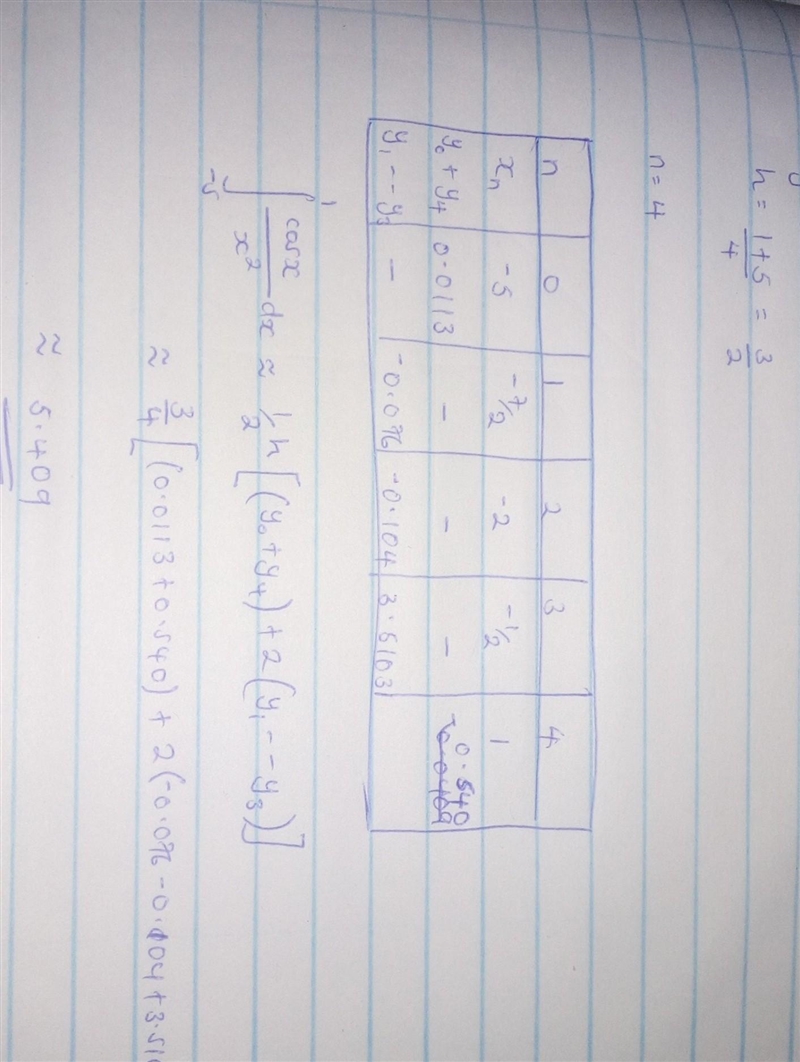 h = 1+5/4 = 3/2
n = 4
n 0 1 2 3 4
xn -5 -7/2 -2 -1/2 1
y0 + y4 0.0113 - - - 0.540
y1 -- y3 - -0.076 -0.104 3.5103
∫-5^1 cosx/x² dx ≈ 1/2 h [(y0+y4) + 2(y1 -- y3)]
≈ 3/4 [(0.0113 + 0.540) + 2(-0.076 - 0.104 + 3.510
≈ 5.409